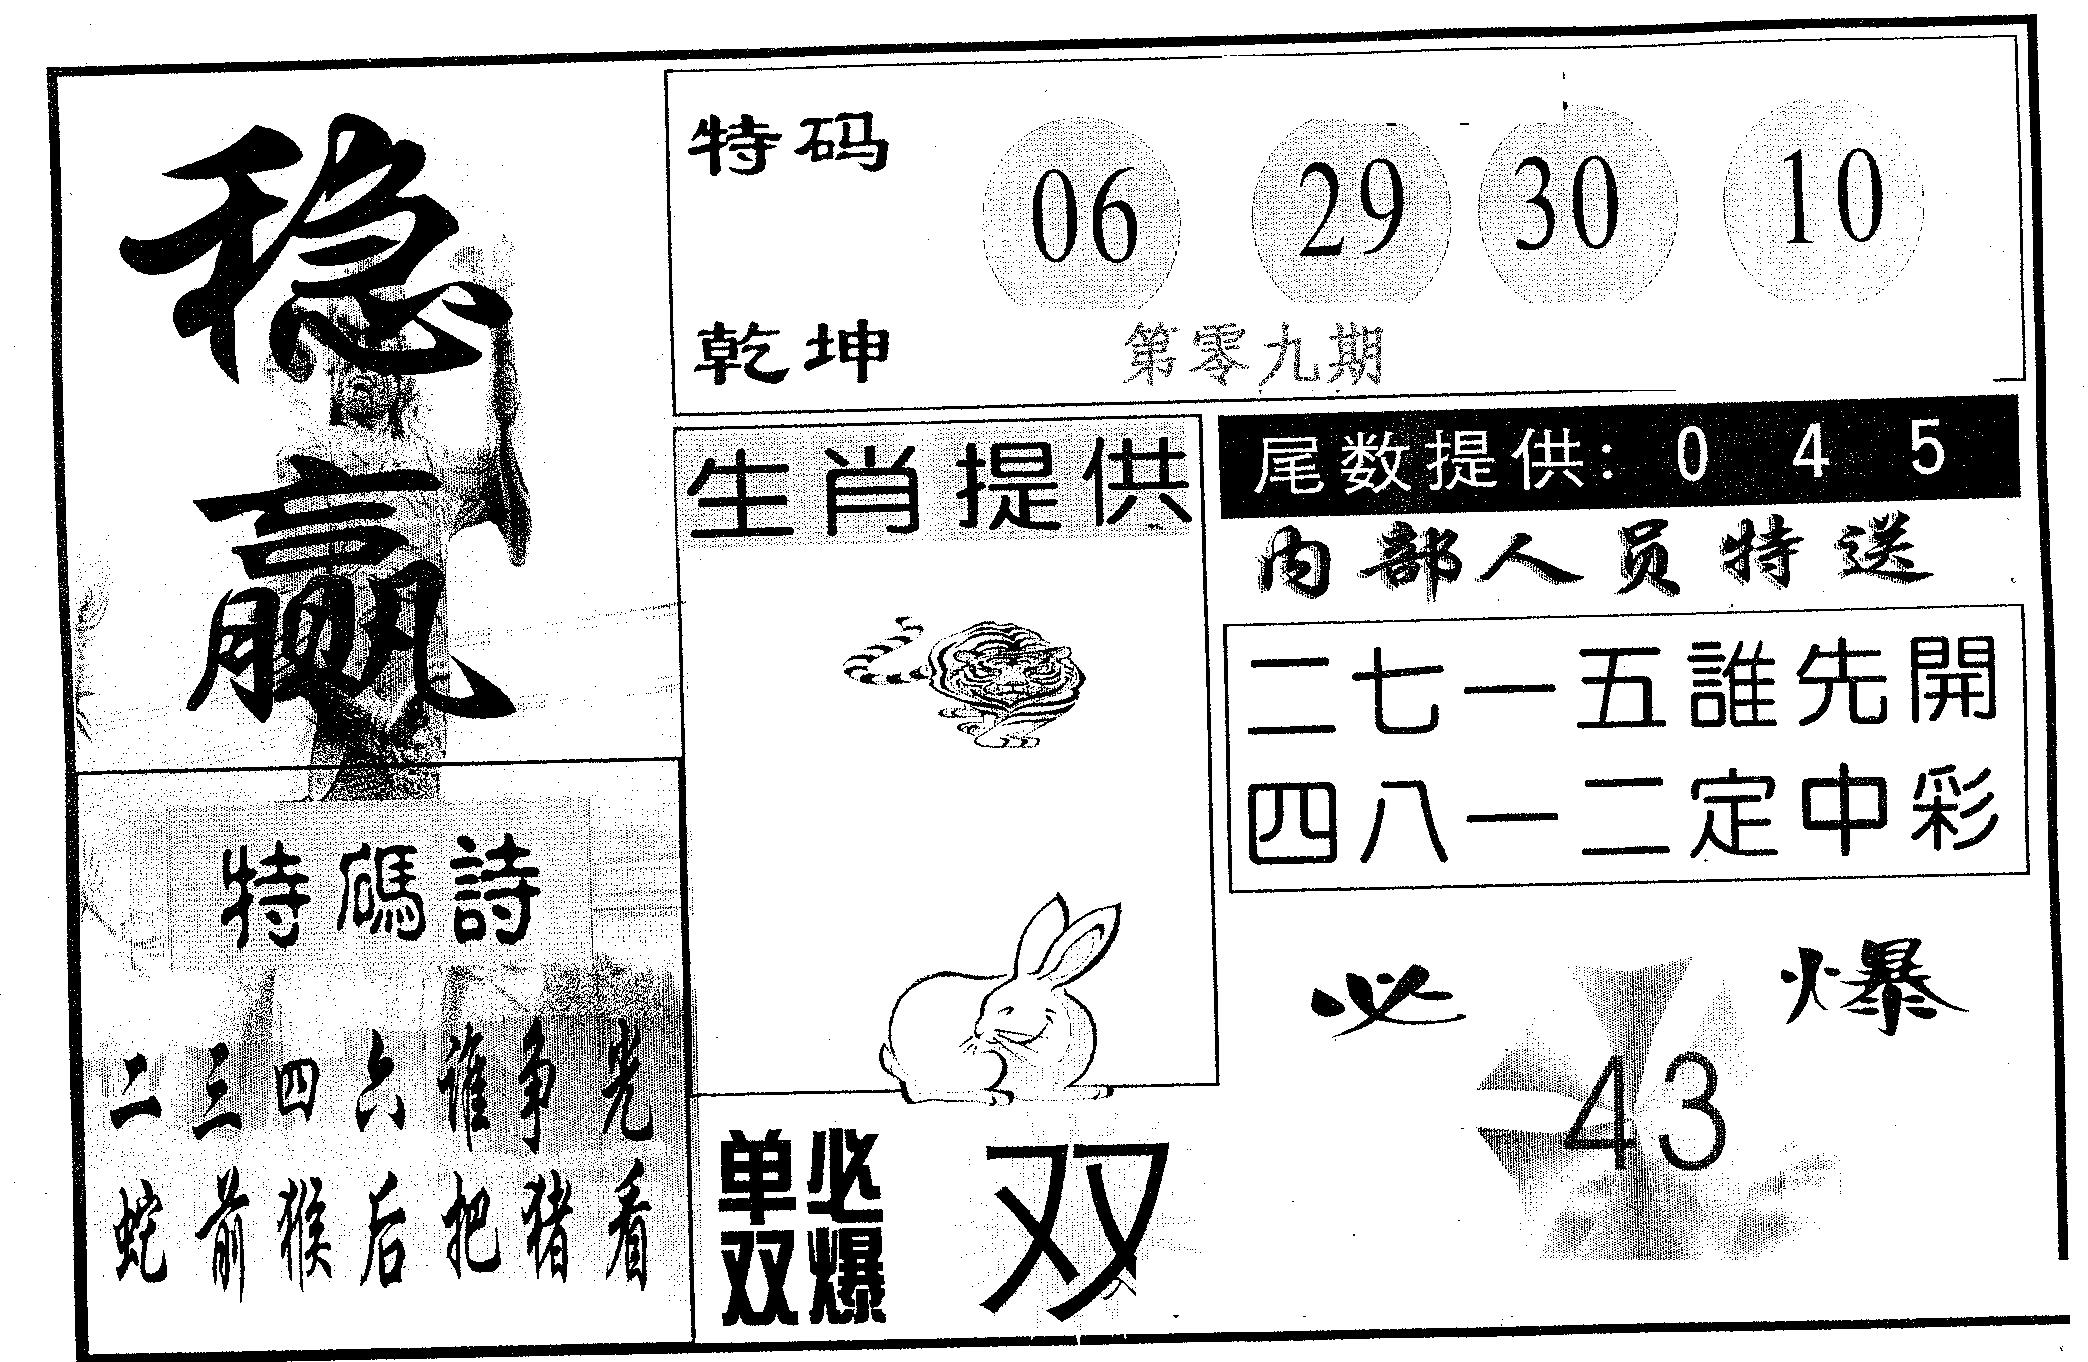 稳赢
特码 06 29 30 10
乾坤 第零九期
生肖提供
尾数提供: 0 4 5
内部人员特送
二七一五誰先開
四八一二定中彩
必爆
43
特碼詩
二三四六谁争先
蛇前猴后把猪看
单双必爆
双